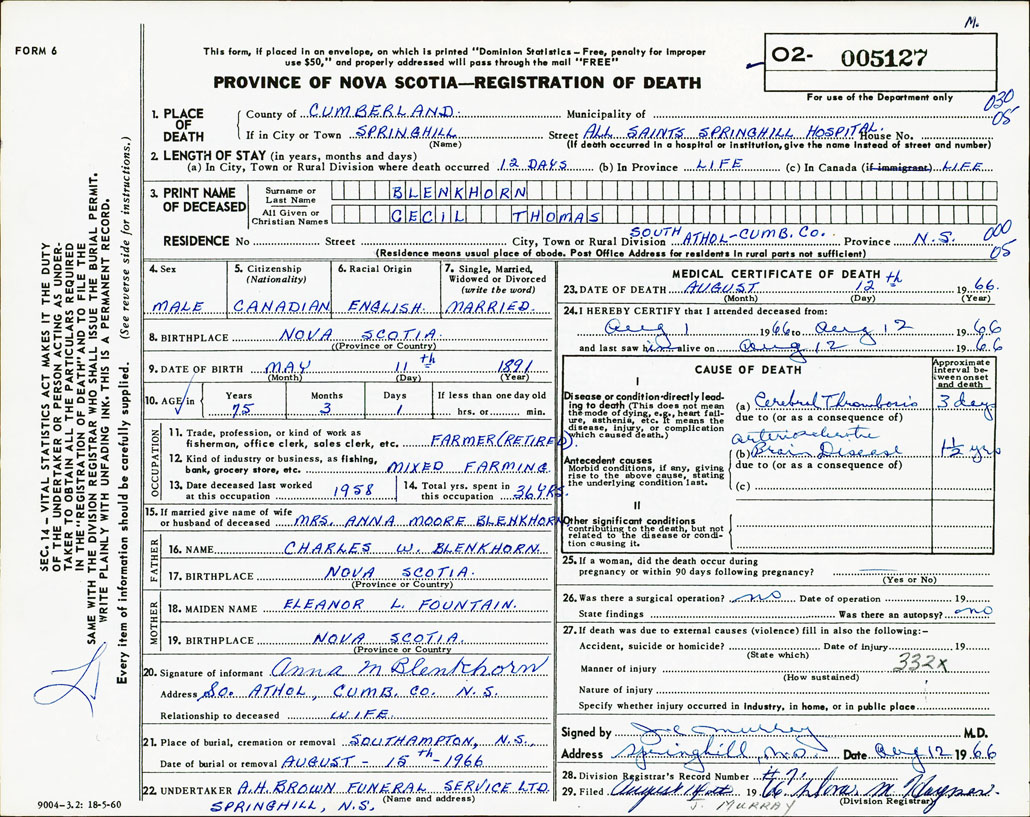 M.
FORM 6
This form, if placed in an envelope, on which is printed "Dominion Statistics – Free, penalty for improper
use $50," and properly addressed will pass through the mail "FREE"
PROVINCE OF NOVA SCOTIA—REGISTRATION OF DEATH
02- 005127
For use of the Department only
030
05
1. PLACE OF DEATH
County of CUMBERLAND. Municipality of
If in City or Town SPRINGHILL Street ALL SAINTS SPRINGHILL HOSPITAL. House No.
(Name) (If death occurred in a hospital or institution, give the name instead of street and number)
2. LENGTH OF STAY (in years, months and days)
(a) In City, Town or Rural Division where death occurred 12 DAYS (b) In Province LIFE (c) In Canada (if immigrant) LIFE
3. PRINT NAME OF DECEASED
Surname or Last Name BLENKHORN
All Given or Christian Names CECIL THOMAS
RESIDENCE No Street City, Town or Rural Division SOUTH ATHOL-CUMB. CO. Province N.S.
000
05
(Residence means usual place of abode. Post Office Address for residents in rural parts not sufficient)
4. Sex
MALE
5. Citizenship (Nationality)
CANADIAN
6. Racial Origin
ENGLISH.
7. Single, Married, Widowed or Divorced (write the word)
MARRIED.
8. BIRTHPLACE NOVA SCOTIA.
(Province or Country)
9. DATE OF BIRTH MAY 11th 1891
(Month) (Day) (Year)
10. AGE in Years Months Days If less than one day old
75 3 1 hrs. or min.
OCCUPATION
11. Trade, profession, or kind of work as
fisherman, office clerk, sales clerk, etc. FARMER (RETIRED).
12. Kind of industry or business, as fishing,
bank, grocery store, etc. MIXED FARMING.
13. Date deceased last worked
at this occupation 1958
14. Total yrs. spent in
this occupation 36 YRS.
15. If married give name of wife
or husband of deceased MRS. ANNA MOORE BLENKHORN
FATHER
16. NAME CHARLES W. BLENKHORN.
17. BIRTHPLACE NOVA SCOTIA.
(Province or Country)
MOTHER
18. MAIDEN NAME ELEANOR L. FOUNTAIN.
19. BIRTHPLACE NOVA SCOTIA.
(Province or Country)
20. Signature of informant Anna M Blenkhorn
Address So. ATHOL, CUMB. CO. N.S.
Relationship to deceased WIFE.
21. Place of burial, cremation or removal SOUTHAMPTON, N.S.
Date of burial or removal AUGUST - 15th - 1966
22. UNDERTAKER A.H. BROWN FUNERAL SERVICE LTD.
(Name and address)
SPRINGHILL, N.S.
9004–3.2: 18-5-60
MEDICAL CERTIFICATE OF DEATH
23. DATE OF DEATH AUGUST 12th 1966.
(Month) (Day) (Year)
24. I HEREBY CERTIFY that I attended deceased from:
Aug 1 1966 to Aug 12 1966
and last saw him alive on Aug 12 1966
CAUSE OF DEATH
Approximate interval between onset and death
I
Disease or condition directly leading to death (This does not mean the mode of dying, e.g., heart failure, asthenia, etc. It means the disease, injury, or complication which caused death.)
(a) Cerebral Thrombosis 3 days
due to (or as a consequence of)
Antecedent causes
Morbid conditions, if any, giving rise to the above cause, stating the underlying condition last.
arteriosclerotic
(b) Brain Disease 1½ yrs
due to (or as a consequence of)
(c)
II
Other significant conditions
contributing to the death, but not related to the disease or condition causing it.
25. If a woman, did the death occur during
pregnancy or within 90 days following pregnancy?
(Yes or No)
26. Was there a surgical operation? no Date of operation 19
State findings Was there an autopsy? no
27. If death was due to external causes (violence) fill in also the following:–
Accident, suicide or homicide? Date of injury 19
(State which)
332X
Manner of injury
(How sustained)
Nature of injury
Specify whether injury occurred in industry, in home, or in public place
Signed by J.C. Murray M.D.
Address Springhill, N.S. Date Aug 12 1966
28. Division Registrar's Record Number #71
29. Filed August 19 66
(Division Registrar)
J. MURRAY
SEC. 14 – VITAL STATISTICS ACT MAKES IT THE DUTY
OF THE UNDERTAKER OR PERSON ACTING AS UNDER-
TAKER TO OBTAIN ALL THE PARTICULARS REQUIRED
IN THE "REGISTRATION OF DEATH" AND TO FILE THE
SAME WITH THE DIVISION REGISTRAR WHO SHALL ISSUE THE BURIAL PERMIT.
WRITE PLAINLY WITH UNFADING INK. THIS IS A PERMANENT RECORD.
Every item of information should be carefully supplied. (See reverse side for instructions.)